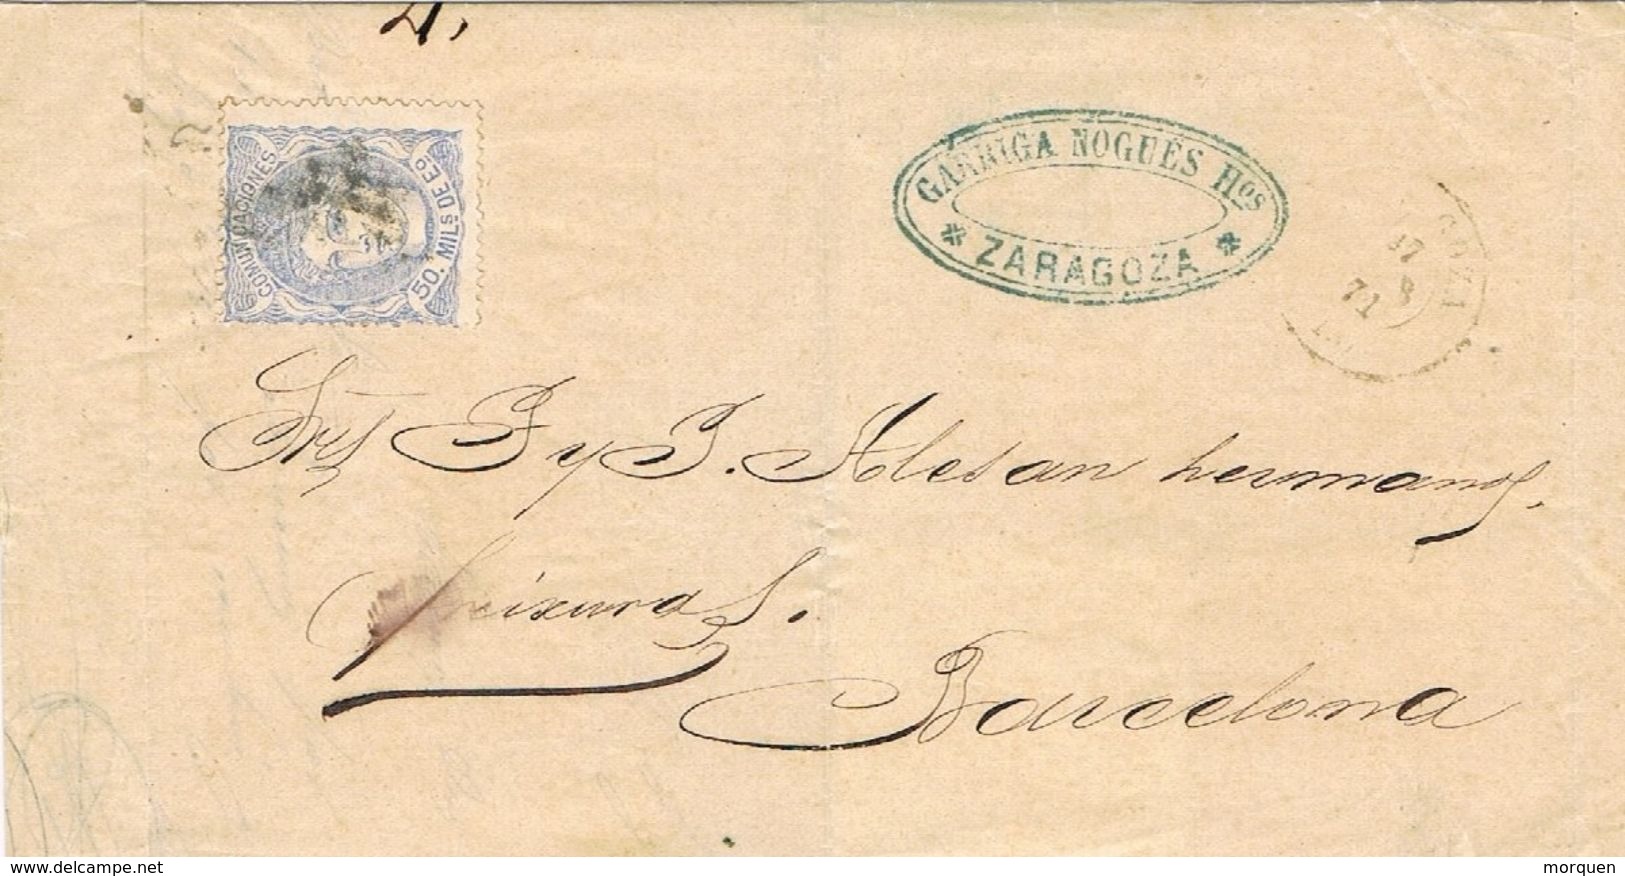 4.
COMUNICACIONES
50. MILS DE EO
GARRIGA NOGUÉS Hos
* ZARAGOZA *
17
71
Sres F y J. Alesan hermanos.
Barcelona
www.delcampe.net
morquen